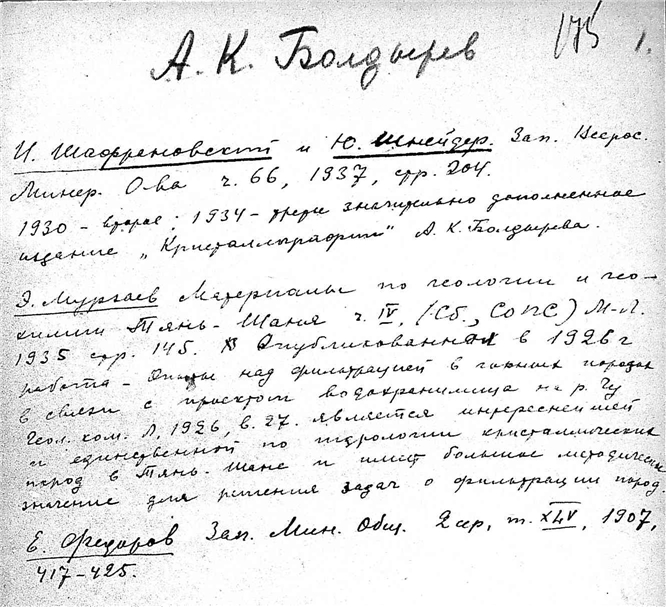 А. К. Болдырев 175 1.
И. Шафрановский и Ю. Шнейдер. Зап. Всерос.
Минер. О-ва ч. 66, 1937, стр. 204.
1930 – второе; 1934 – третье значительно дополненное
издание „Кристаллографии" А. К. Болдырева.
Э. Мурзаев Материалы по геологии и гео-
химии Тянь-Шаня ч. IV, (Сб., СОПС) М-Л.
1935 стр. 145. Опубликованная в 1926 г
работа – Опыты над фильтрацией в горных породах
в связи с проектом водохранилища на р. Чу
Геол. ком. Л, 1926, в. 27. является интереснейшей
и единственной по гидрологии кристаллических
пород в Тянь-Шане и имеет большое методическ.
значение для решения задач о фильтрации пород.
Е. Федоров Зап. Мин. Общ. 2 сер, т. XLV, 1907,
417–425.